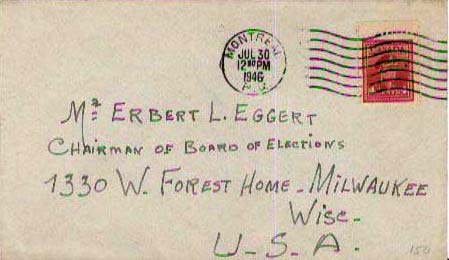 MONTREAL
JUL 30
12 PM
1946
P.Q.
Mr ERBERT L. EGGERT
CHAIRMAN OF BOARD OF ELECTIONS
1330 W. FOREST HOME - MILWAUKEE
Wisc-
U-S-A.
150